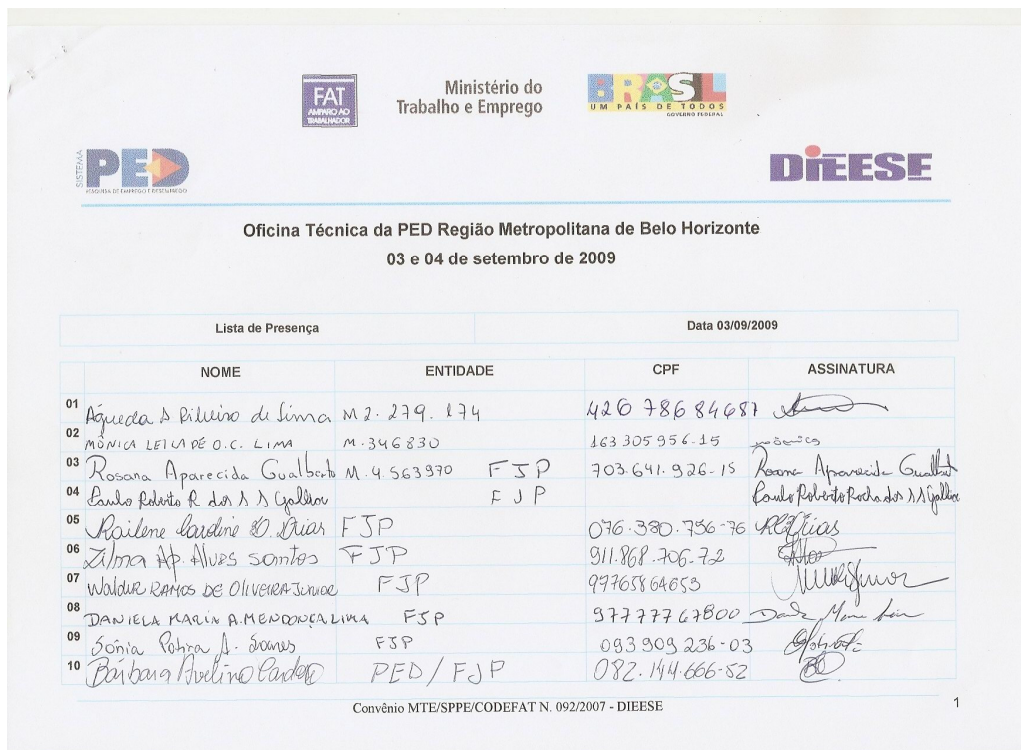 FAT
AMPARO AO
TRABALHADOR
Ministério do
Trabalho e Emprego
BRASIL
UM PAÍS DE TODOS
GOVERNO FEDERAL
SISTEMA
PED
PESQUISA DE EMPREGO E DESEMPREGO
DIEESE
Oficina Técnica da PED Região Metropolitana de Belo Horizonte
03 e 04 de setembro de 2009
Lista de Presença Data 03/09/2009
NOME ENTIDADE CPF ASSINATURA
01 Águeda S Ribeiro de Lima M 2. 279. 174 426 786 84687
02 MÔNICA LEILA DE O.C. LIMA M.346830 163 305 956-15 mônica
03 Rosana Aparecida Gualberto M.4.563970 FJP 703.641.926-15 Rosana Aparecida Gualberto
04 Paulo Roberto R dos S S FJP Paulo Roberto Rocha dos S S
05 Railene D. Dias FJP 076.380.756-76
06 Zilma Ap. Alves Santos FJP 911.868.706-72
07 Waldur RAMOS DE OLIVEIRA JUNIOR FJP 99765864653
08 DANIELA MARIA A. MENDONÇA LIMA FJP 97777767800
09 Sônia Potira A. Soares FJP 093909236-03
10 Bárbara Avelino Cardoso PED/FJP 082.144.666-52
Convênio MTE/SPPE/CODEFAT N. 092/2007 - DIEESE 1